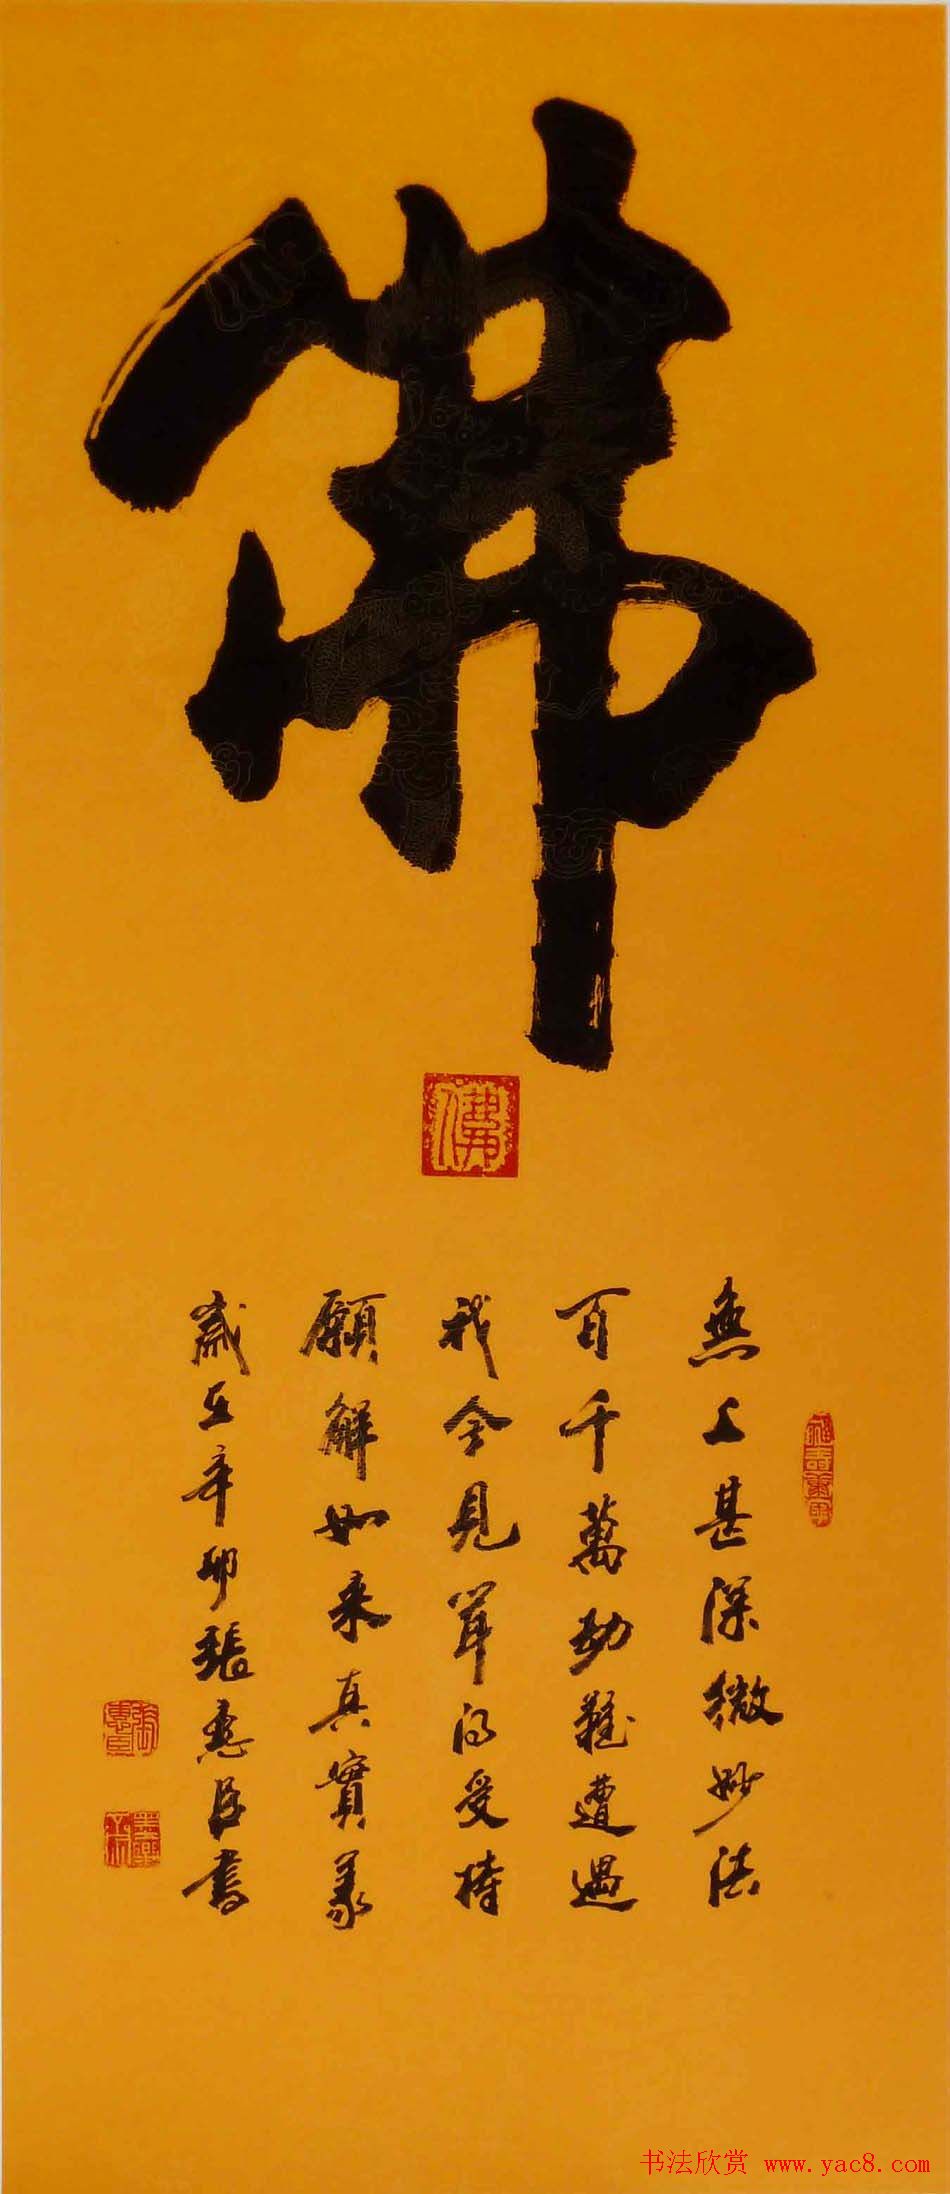 佛
佛
無上甚深微妙法
百千萬劫難遭遇
我今見聞得受持
願解如来真實義
歲在辛卯張惠臣書
張惠臣
书法欣赏 www.yac8.com